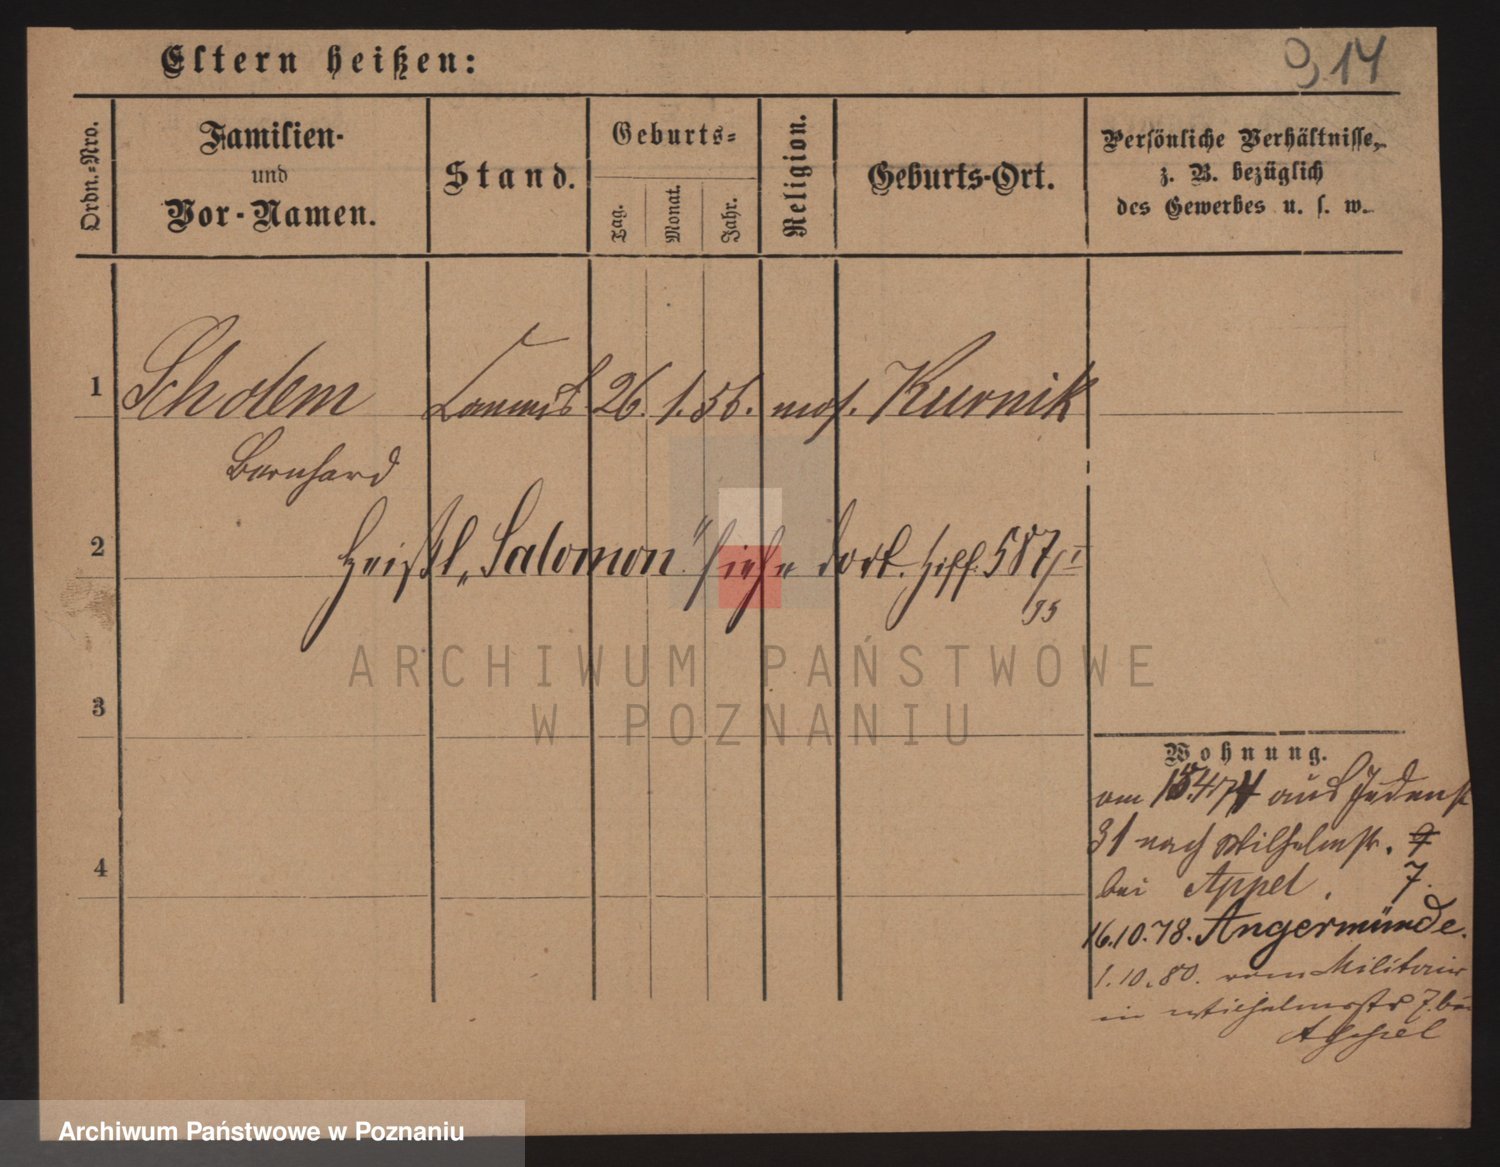 Eltern heißen:
914
Ordn.-Nro.
Familien-
und
Vor-Namen.
Stand.
Geburts-
Tag.
Monat.
Jahr.
Religion.
Geburts-Ort.
Persönliche Verhältnisse,
z. B. bezüglich
des Gewerbes u. s. w.
1 Scholem 26. 1. 56. mos. Kurnik
Bernhard
2 heißt „Salomon" siehe dort. 587
95
ARCHIWUM PAŃSTWOWE
W POZNANIU
3
Wohnung.
am 15.4.74 aus Judenst
31 nach Wilhelmstr. 9
4
bei Appel. 7.
16.10.78. Angermünde.
1.10.80. vom Militair
in Wilhelmstr 7. bei
Appel
Archiwum Państwowe w Poznaniu